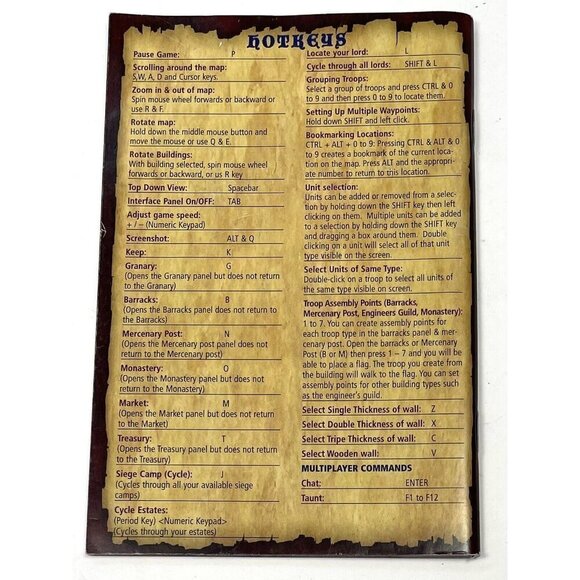 HOTKEYS
Pause Game: P
Scrolling around the map:
S,W, A, D and Cursor keys.
Zoom in & out of map:
Spin mouse wheel forwards or backward or
use R & F.
Rotate map:
Hold down the middle mouse button and
move the mouse or use Q & E.
Rotate Buildings:
With building selected, spin mouse wheel
forwards or backward, or us R key
Top Down View: Spacebar
Interface Panel On/OFF: TAB
Adjust game speed:
+ / – (Numeric Keypad)
Screenshot: ALT & Q
Keep: K
Granary: G
(Opens the Granary panel but does not return
to the Granary)
Barracks: B
(Opens the Barracks panel but does not return
to the Barracks)
Mercenary Post: N
(Opens the Mercenary post panel does not
return to the Mercenary post)
Monastery: O
(Opens the Monastery panel but does not
return to the Monastery)
Market: M
(Opens the Market panel but does not return
to the Market)
Treasury: T
(Opens the Treasury panel but does not return
to the Treasury)
Siege Camp (Cycle): J
(Cycles through all your available siege
camps)
Cycle Estates:
(Period Key) <Numeric Keypad>
(Cycles through your estates)
Locate your lord: L
Cycle through all lords: SHIFT & L
Grouping Troops:
Select a group of troops and press CTRL & 0
to 9 and then press 0 to 9 to locate them.
Setting Up Multiple Waypoints:
Hold down SHIFT and left click.
Bookmarking Locations:
CTRL + ALT + 0 to 9: Pressing CTRL & ALT & 0
to 9 creates a bookmark of the current loca-
tion on the map. Press ALT and the appropri-
ate number to return to this location.
Unit selection:
Units can be added or removed from a selec-
tion by holding down the SHIFT key then left
clicking on them. Multiple units can be added
to a selection by holding down the SHIFT key
and dragging a box around them. Double
clicking on a unit will select all of that unit
type visible on the screen.
Select Units of Same Type:
Double-click on a troop to select all units of
the same type visible on screen.
Troop Assembly Points (Barracks,
Mercenary Post, Engineers Guild, Monastery):
1 to 7. You can create assembly points for
each troop type in the barracks panel & mercenary
post. Open the barracks or Mercenary
Post (B or M) then press 1 – 7 and you will be
able to place a flag. The troop you create from
the building will walk to the flag. You can set
assembly points for other building types such
as the engineer's guild.
Select Single Thickness of wall: Z
Select Double Thickness of wall: X
Select Tripe Thickness of wall: C
Select Wooden wall: V
MULTIPLAYER COMMANDS
Chat: ENTER
Taunt: F1 to F12